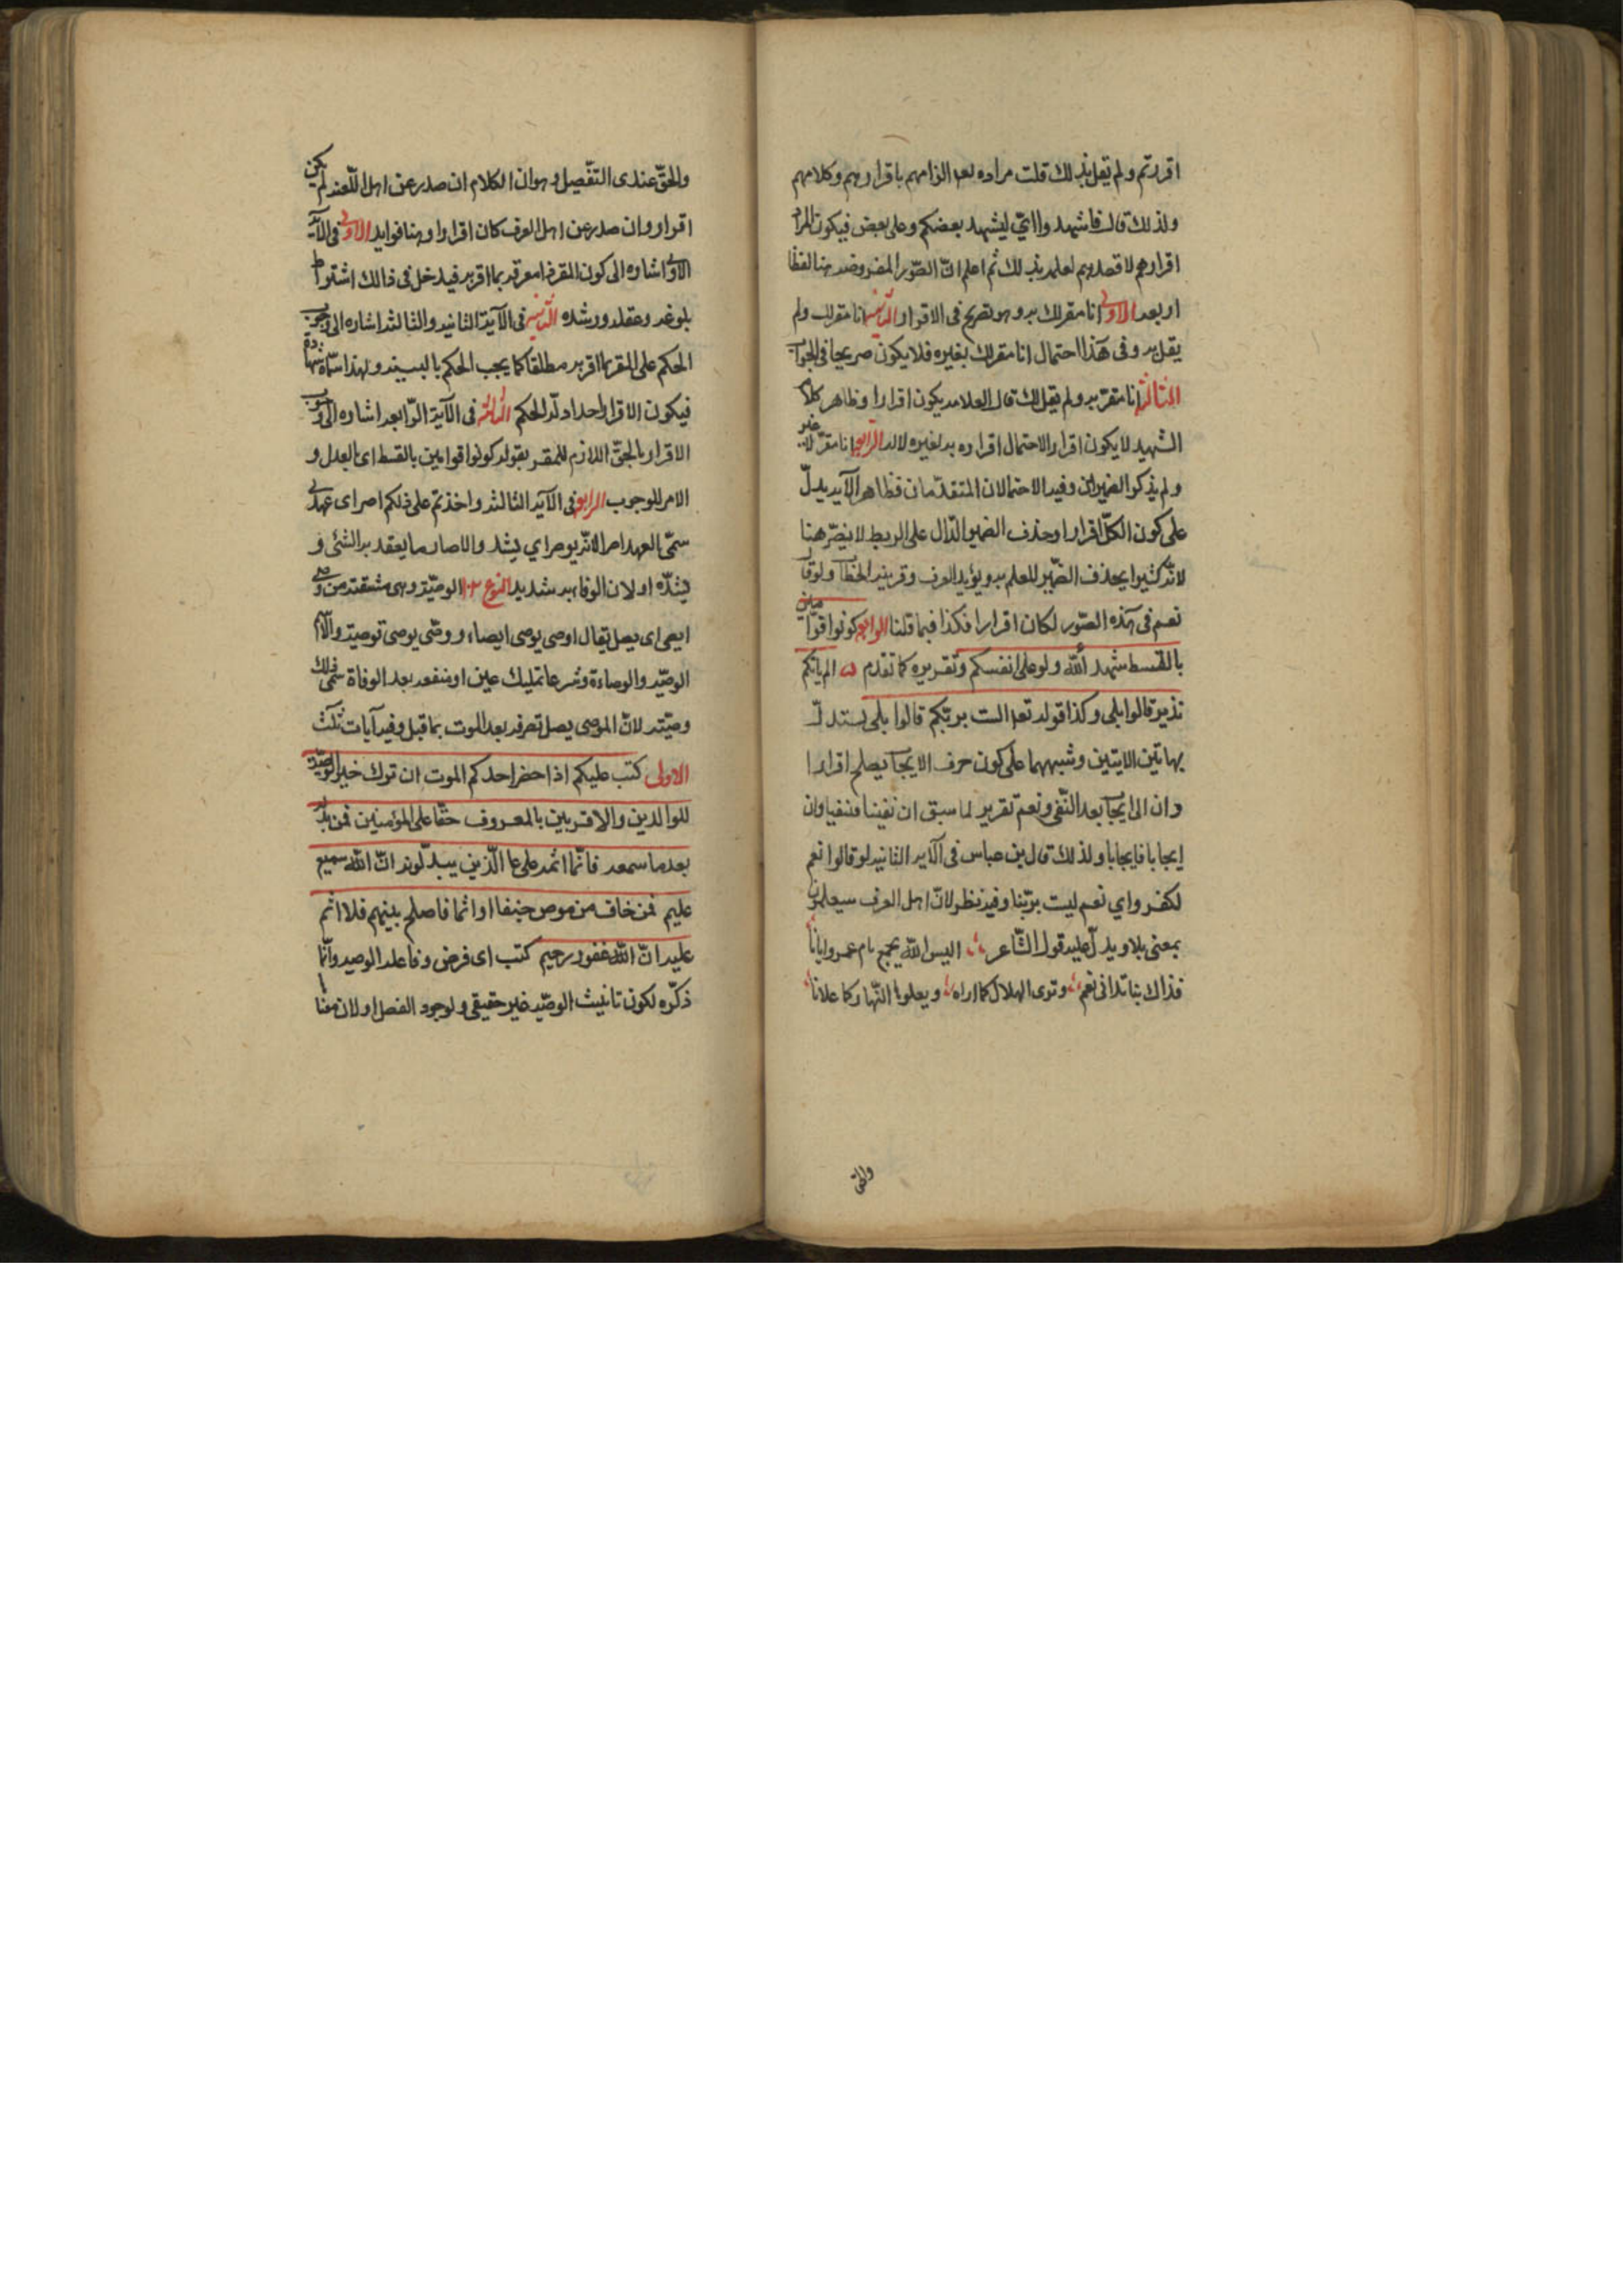 اقررتم ولم تقل بذلك قلت مراده تعا الزامهم باقرارهم وكلامهم
ولذلك قال فاشهدوا اى ليشهد بعضكم وعلى بعض فيكون المراد
اقرارهم لا قصدهم لعلمه بذلك ثم اعلم انّ الصّور المفروضه هنا لفظا
اربعه الاولى انا مقر لك به وهو تصريح فى الاقرار الثانيه انا مقر لك ولم
يقل به وفى هذا احتمال انا مقر لك بغيره فلا يكون صريحا فى الجواب
الثالثه انا مقرّ به ولم يقل لك قال العلامه يكون اقرارا وظاهر كلام
الشهيد لا يكون اقرارا لاحتمال اقراره به لغيره لا له الرابع انا مقرّ لا غير
ولم يذكر الضميران وفيه الاحتمالان المتقدّمان فظاهر الآيه يدلّ
على كون الكلّ اقرارا وحذف الضمير الدّال على الربط لا يضرّ هنا
لانّه كثيرا يحذف الضّمير للعلم به ويؤيد العرف وقرينه الخطاب ولو قال
نعم فى هذه الصّور لكان اقرارا فكذا فيما قلنا الرابع كونوا قوّامين
بالقسط شهداء لله ولو على انفسكم وتقريره كما تقدم ه الم ياتكم
نذير قالوا بلى وكذا قوله تعا الست بربّكم قالوا بلى يستدلّ
بهاتين الايتين وشبههما على كون حرف الايجاب يصلح اقرارا
وان الى ايجاب بعد النّفى ونعم تقرير لما سبق ان نفينا فنفيا وان
ايجابا فايجابا ولذلك قال بن عباس فى الآيه الثانيه لو قالوا نعم
لكفروا اي نعم ليت بربّنا وفيه نظر لانّ اهل العرف سيعلمون
بمعنى بلا ويدلّ عليه قول الشّاعر اليس الله يجمع ام عمرو وايانا
فذاك بنا تدانى نعم وترى الهلال كما اراه ويعلوا النّهار كما علانا
والحق
والحقّ عندى التفّصيل وهو ان الكلام ان صدر عن اهل اللّغه لم يكن
اقرار وان صدر عن اهل العرف كان اقرارا وهنا فوايد الاولى فى الآيه
الاولى اشاره الى كون المقر فيدخل فى ذالك اشتراط
بلوغه وعقله ورشده الثانيه فى الآية الثانيه والثالثه اشاره الى وجوب
الحكم على المقر بما اقر به مطلقا كما يجب الحكم بالبينه ولهذا اسمّاه شهادة
فيكون الاقرار احد ادلّه الحكم الثالثه فى الآية الرّابعه اشاره الى وجوب
الاقرار بالحقّ اللازم للمقر بقوله كونوا قوامين بالقسط اى العدل و
الامر للوجوب الرابع فى الآيه الثالثه واخذتم على ذلكم اصر اى عهدى
سمّى العهد اصرا لانّه يوصر اي يشد والاصار ما يعقد به الشئ و
يشدّه او لان الوفاء به شديد النوع ١٢ الوصيّة وهى مشتقة من وصى
ايصى اى يصل يقال اوصى يوصى ايصاء ووصّى يوصى توصية والاسم
الوصيّه والوصاءة وشرعا تمليك عين او منفعه بعد الوفاة سمّى ذلك
وصيّته لانّ الموصى يصل تصرفه بعد الموت بما قبل وفيه آيات ثلث
الاولى كتب عليكم اذا حضر احدكم الموت ان ترك خير الوصيّة
للوالدين والاقربين بالمعروف حقّا على المؤمنين فمن بدّله
بعد ما سمعه فانّما اثمه على عا الّذين يبدّلونه انّ الله سميع
عليم فمن خاف من موص جنفا او اثما فاصلح بينهم فلا اثم
عليه انّ الله غفور رحيم كتب اى فرض وفاعله الوصيه وانّما
ذكّره لكون تانيث الوصيّه غير حقيقى ولوجود الفصل او لان معنا